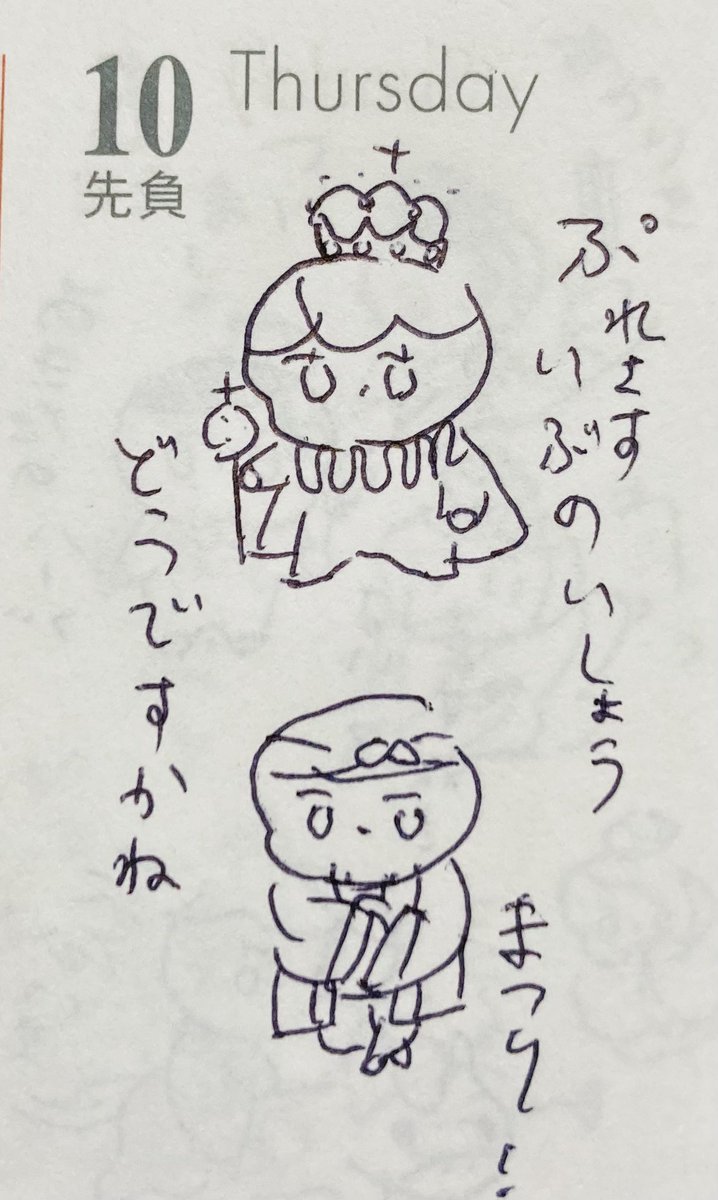 10 Thursday
先負
ぷれさす
いぶのいしょう
どうですかね
まつり!